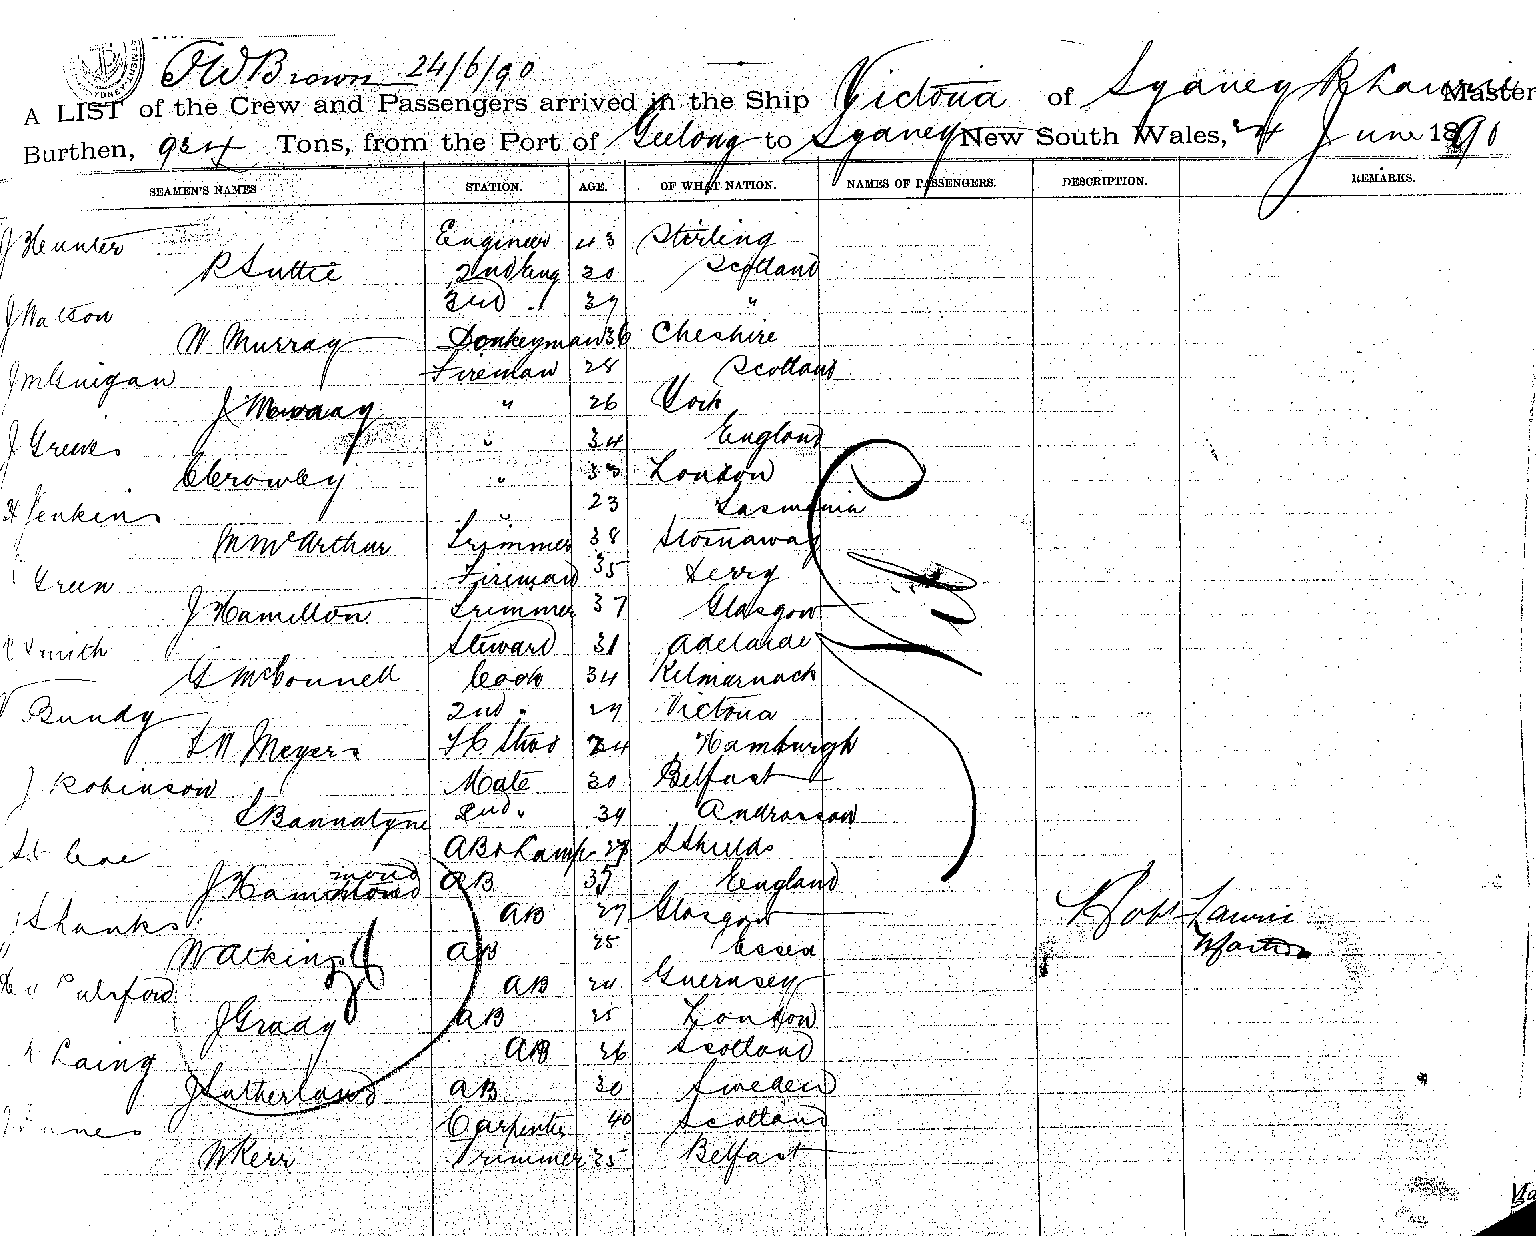 JW Brown 24/6/90
A LIST of the Crew and Passengers arrived in the Ship Victoria of Sydney R Laurie Master
Burthen, 934 Tons, from the Port of Geelong to Sydney New South Wales, 24 June 1890
SEAMEN'S NAMES STATION. AGE. OF WHAT NATION. NAMES OF PASSENGERS. DESCRIPTION. REMARKS.
J Hunter Engineer 43 Stirling
R Suttie 2nd Eng 30 Scotland
J Watson 3rd " 37 "
W Murray Donkeyman 36 Cheshire
J McGuigan Fireman 28 Scotland
J " 26 York
J Greeves " 34 England
C Crowley " 33 London
H Jenkins " 23 Tasmania
M McArthur Trimmer 38 Stornaway
Green Fireman 35 Derry
J Hamilton Trimmer 37 Glasgow
Smith Steward 31 Adelaide
G McConnell Cook 34 Kilmarnock
Bundy 2nd " 29 Victoria
Meyers 24 Hamburgh
J Robinson Mate 30 Belfast
Bannatyne 2nd " 39 Androssan
AB & Lamps S Shields
J Hammond mond AB 35 England
Shanks AB 27 Glasgow Robt Laurie
W Atkins AB 25 Essex Master
Pulsford AB 24 Guernsey
J Grady AB 25 London
Laing AB 26 Scotland
J Sutherland AB 30 Sweden
Innes Carpenter 40 Scotland
W Kerr Trimmer 25 Belfast